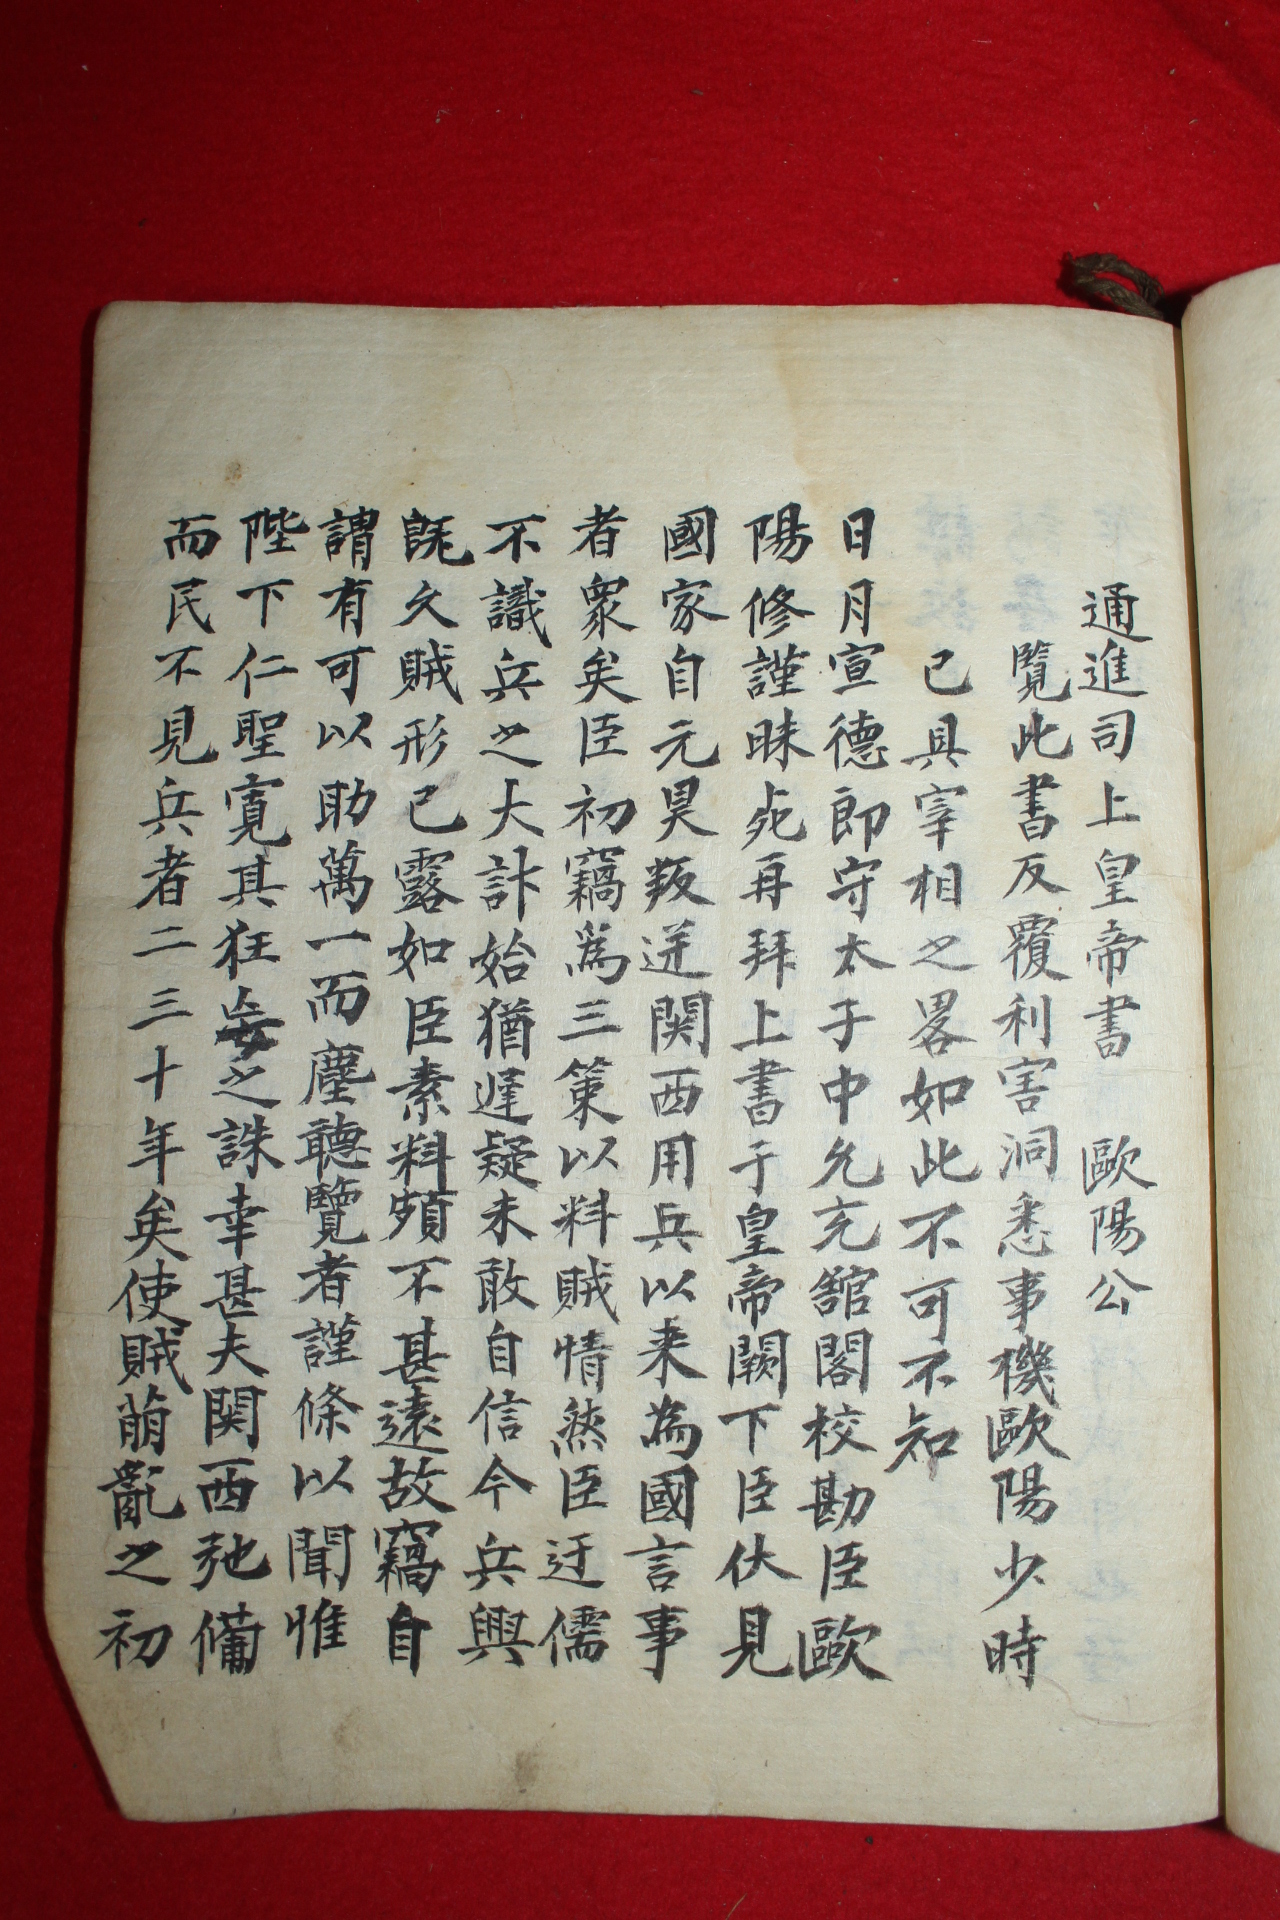 通進司上皇帝書 歐陽公
覽此書反覆利害洞悉事機歐陽少時
已具宰相之畧如此不可不知
日月宣德郎守太子中允充舘閣校勘臣歐
陽修謹昧死再拜上書于皇帝闕下臣伏見
國家自元昊叛逆関西用兵以来為國言事
者衆矣臣初竊爲三策以料賊情然臣迂儒
不識兵之大計始猶遅疑未敢自信今兵興
既久賊形已露如臣素料頗不甚遠故竊自
謂有可以助萬一而塵聽覽者謹條以聞惟
陛下仁聖寛其狂妄之誅幸甚夫関西弛備
而民不見兵者二三十年矣使賊萠亂之初